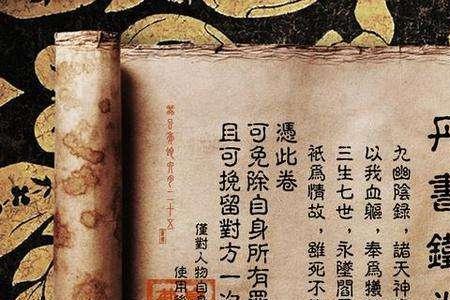 丹書鐵
九幽陰錄，諸天神
以我血軀，奉為犧
三生七世，永墜閻
祇為情故，雖死不
憑此卷
可免除自身所有罪
且可挽留對方一次
僅對人物自
使用後